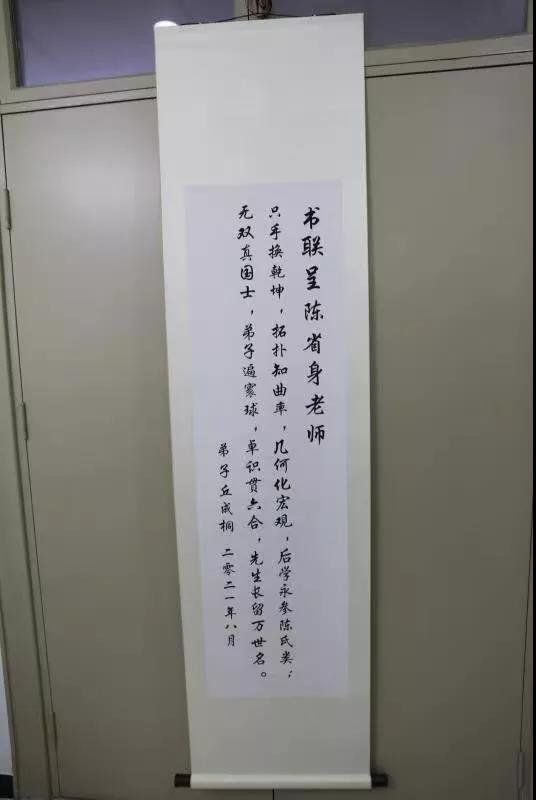 书联呈陈省身老师
只手换乾坤，拓扑知曲率，几何化宏观，后学永参陈氏类；
无双真国士，弟子遍寰球，卓识贯六合，先生长留万世名。
弟子丘成桐 二零二一年八月